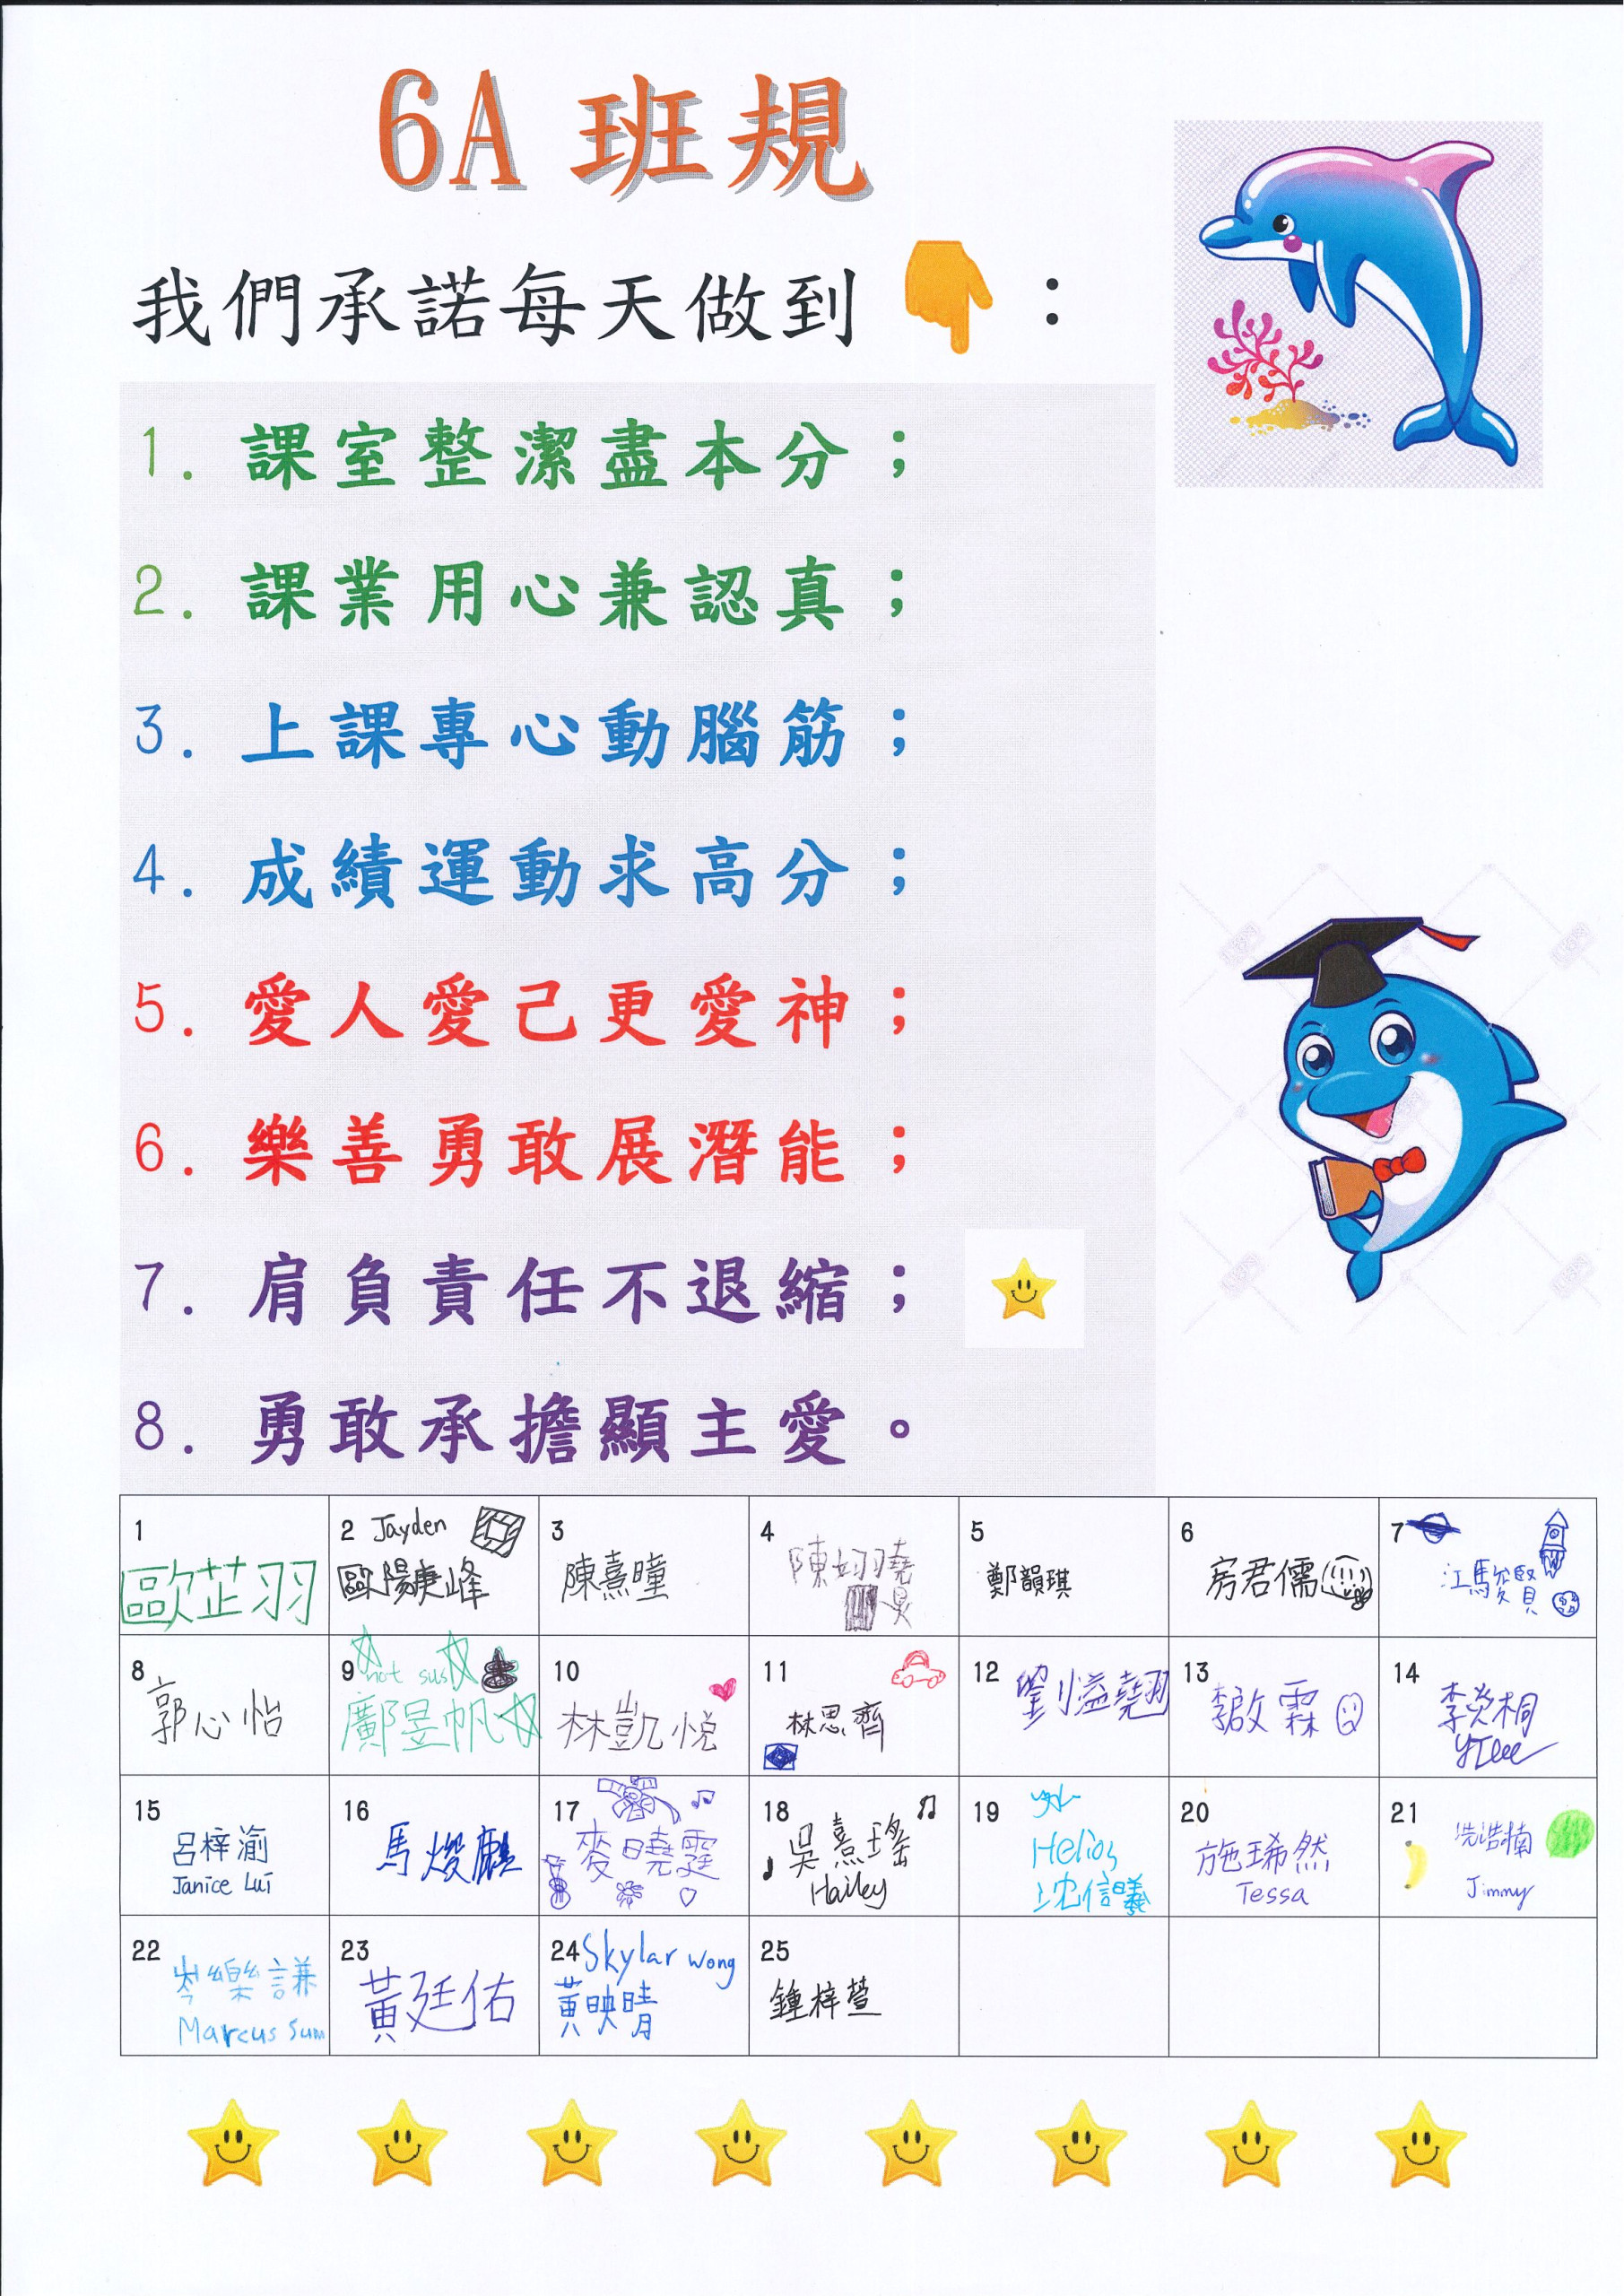 6A 班規
我們承諾每天做到 ：
1. 課室整潔盡本分；
2. 課業用心兼認真；
3. 上課專心動腦筋；
4. 成績運動求高分；
5. 愛人愛己更愛神；
6. 樂善勇敢展潛能；
7. 肩負責任不退縮；
8. 勇敢承擔顯主愛。
1
歐芷羽
2 Jayden
歐陽庚峰
3
陳熹曈
4
5
鄭韻琪
6
房君儒
7
江駿賢
8
郭心怡
9 not sus
鄺昱帆
10
林凱悅
11
林思齊
12
劉溢堯翔
13
李啟霖
14
李炎桐
15
呂梓渝
Janice Lui
16
馬焌麟
17
麥曉霆
18
吳熹瑤
Hailey
19
Helios
沈信曦
20
施琋然
Tessa
21
冼浩楠
Jimmy
22
岑樂謙
Marcus Sum
23
黃廷佑
24 Skylar Wong
黃映晴
25
鍾梓萱